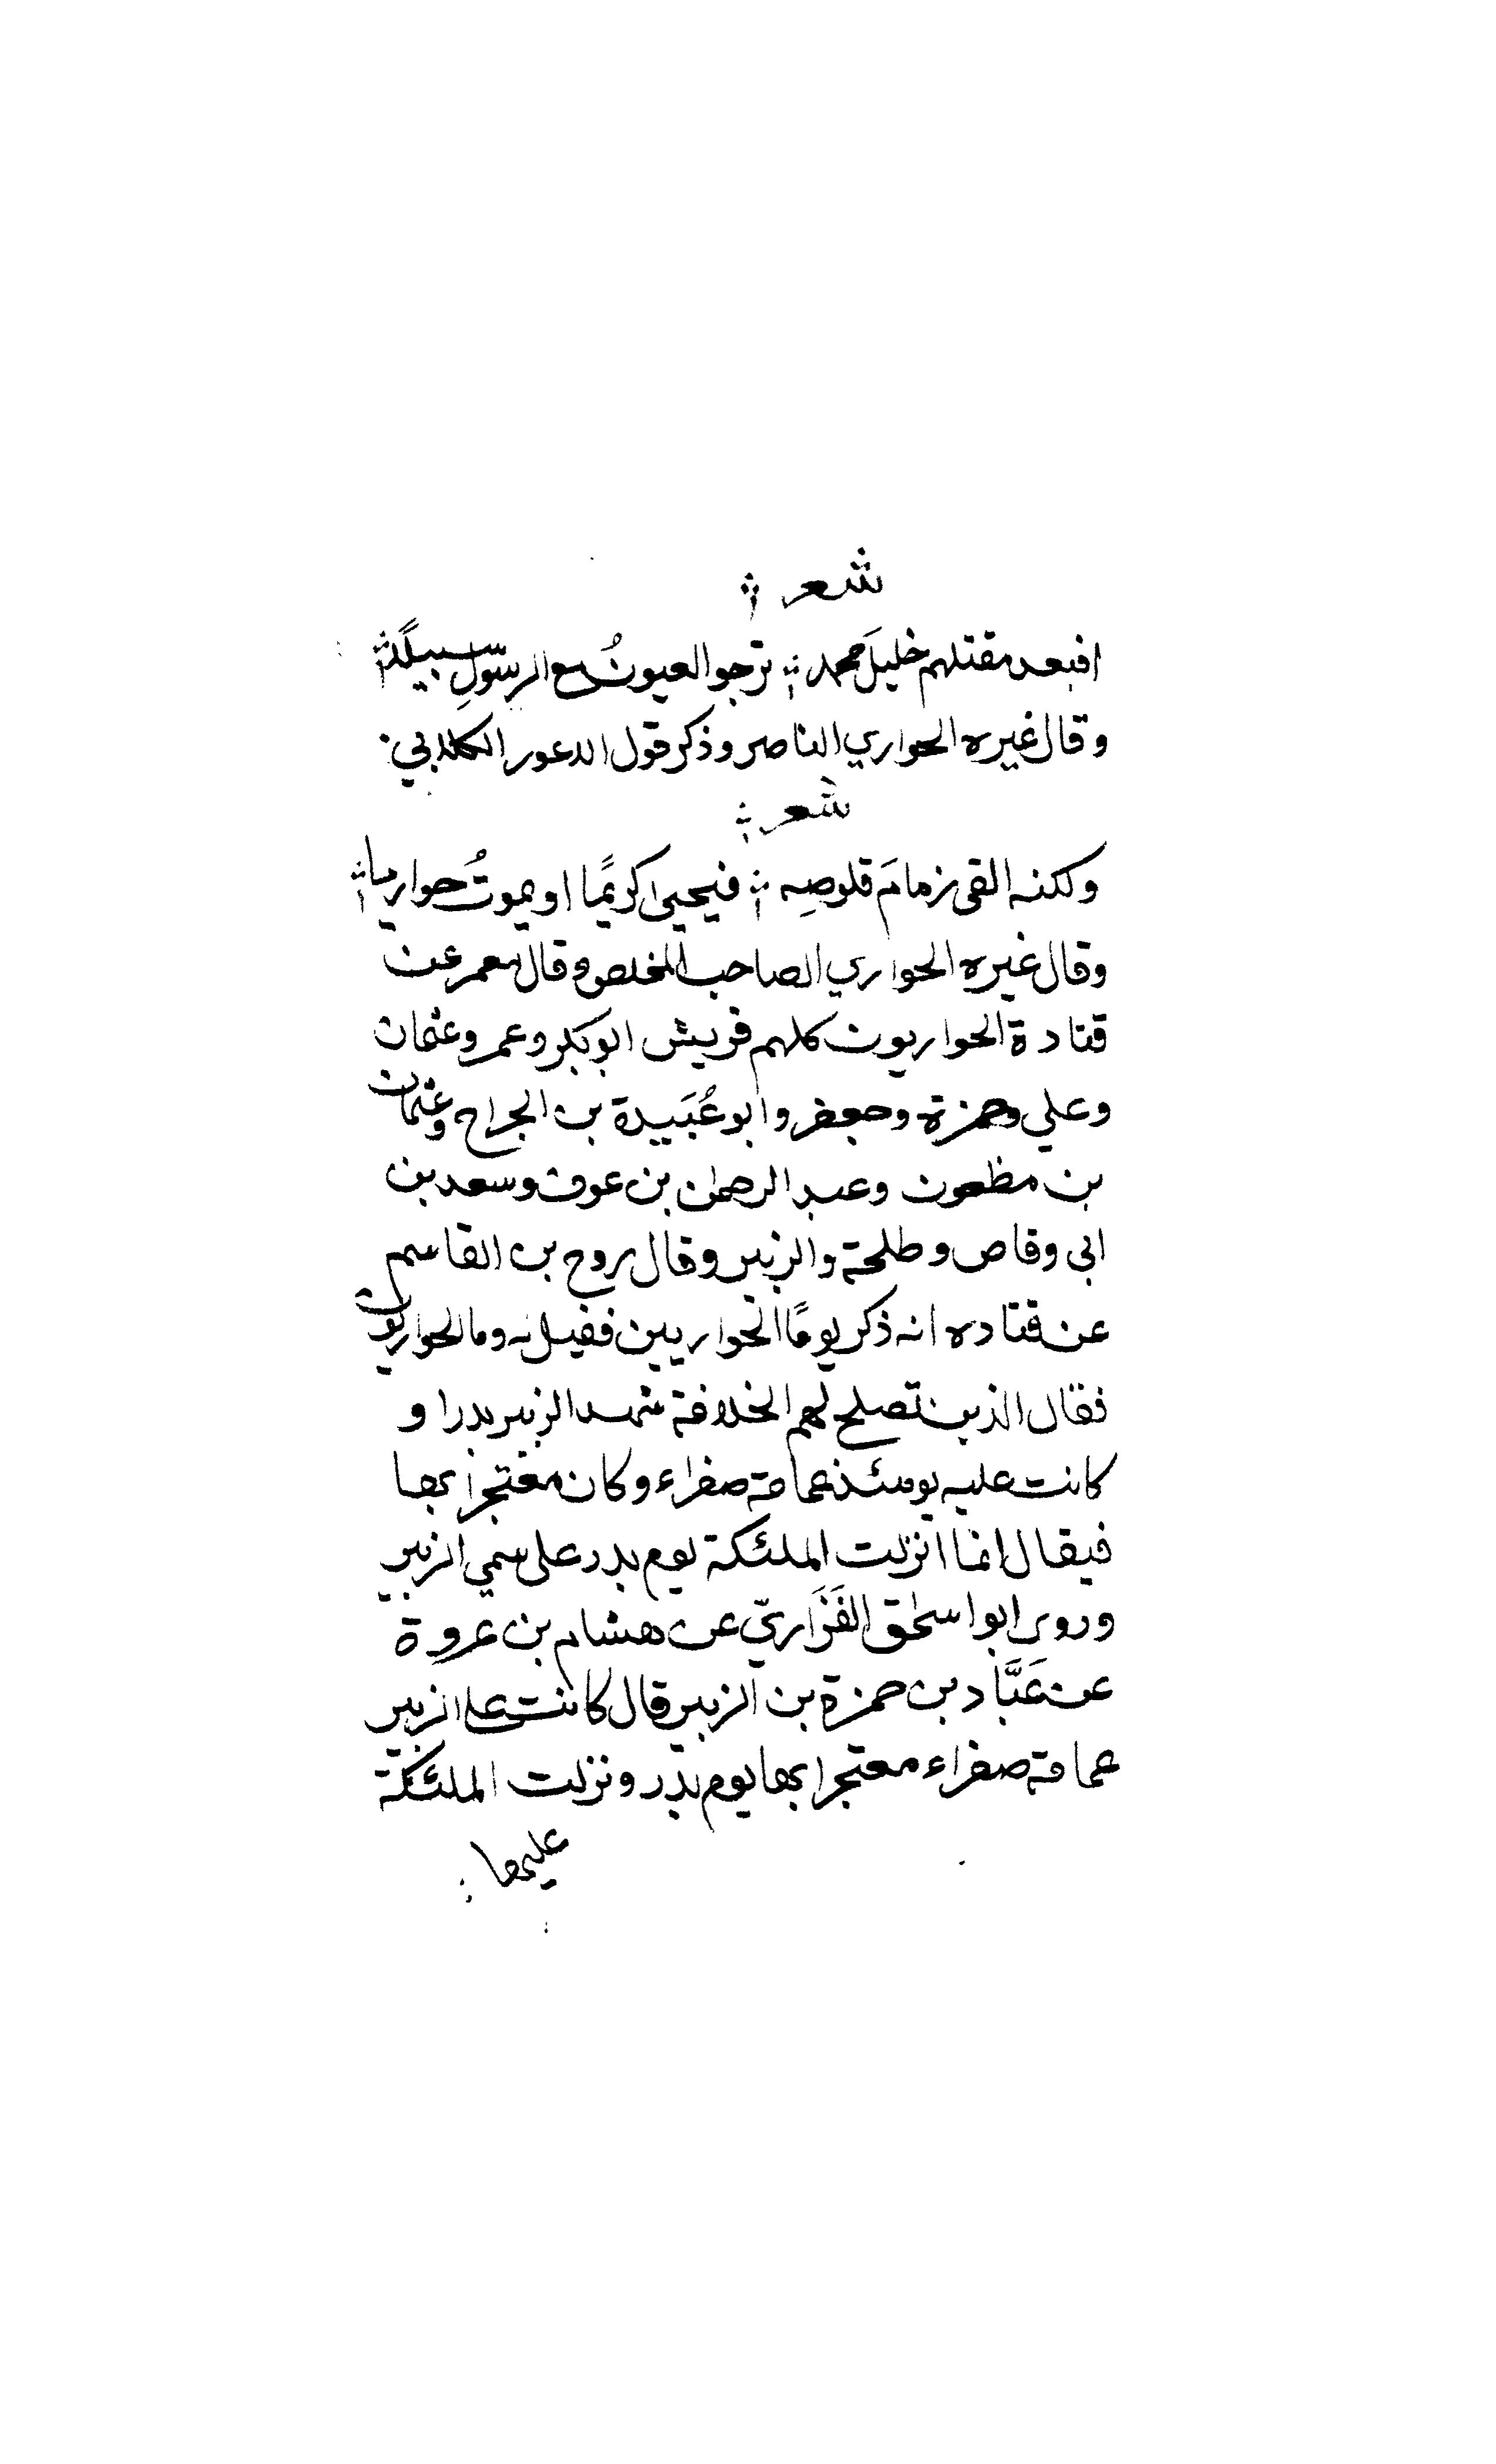 شعر
افبعد مقتلهم خليلَ محمد ترجوا العيونُ مع الرسولِ سبيلًا
وقال غيره الحواري الناصر وذكر قول الاعور الكلابي
شعر
ولكنه القى زمامَ قلوصِه فيحيى كريمًا او يموتُ حواريا
وقال غيره الحواري الصاحب المخلص وقال معمر عن
قتادة الحواريون كلهم قريش ابو بكر وعمر وعثمان
وعلي وحمزة وجعفر وابو عُبَيدة بن الجراح وعثمان
بن مظعون وعبد الرحمن بن عوف وسعد بن
ابي وقاص وطلحة والزبير وقال روح بن القاسم
عن قتاده انه ذكر يومًا الحواريين فقيل له وما الحواريون
فقال الذين تصلح لهم الخلافة شهد الزبير بدرا و
كانت عليه يومئذ عمامة صفراء وكان معتجرا بها
فيقال انما انزلت الملئكة يوم بدر على سمي الزبير
وروى ابو اسحٰق الفَزَاريّ عن هشام بن عروة
عن عَبَّاد بن حمزة بن الزبير قال كانت على الزبير
عمامة صفراء معتجرا بها يوم بدر ونزلت الملئكة
عليها